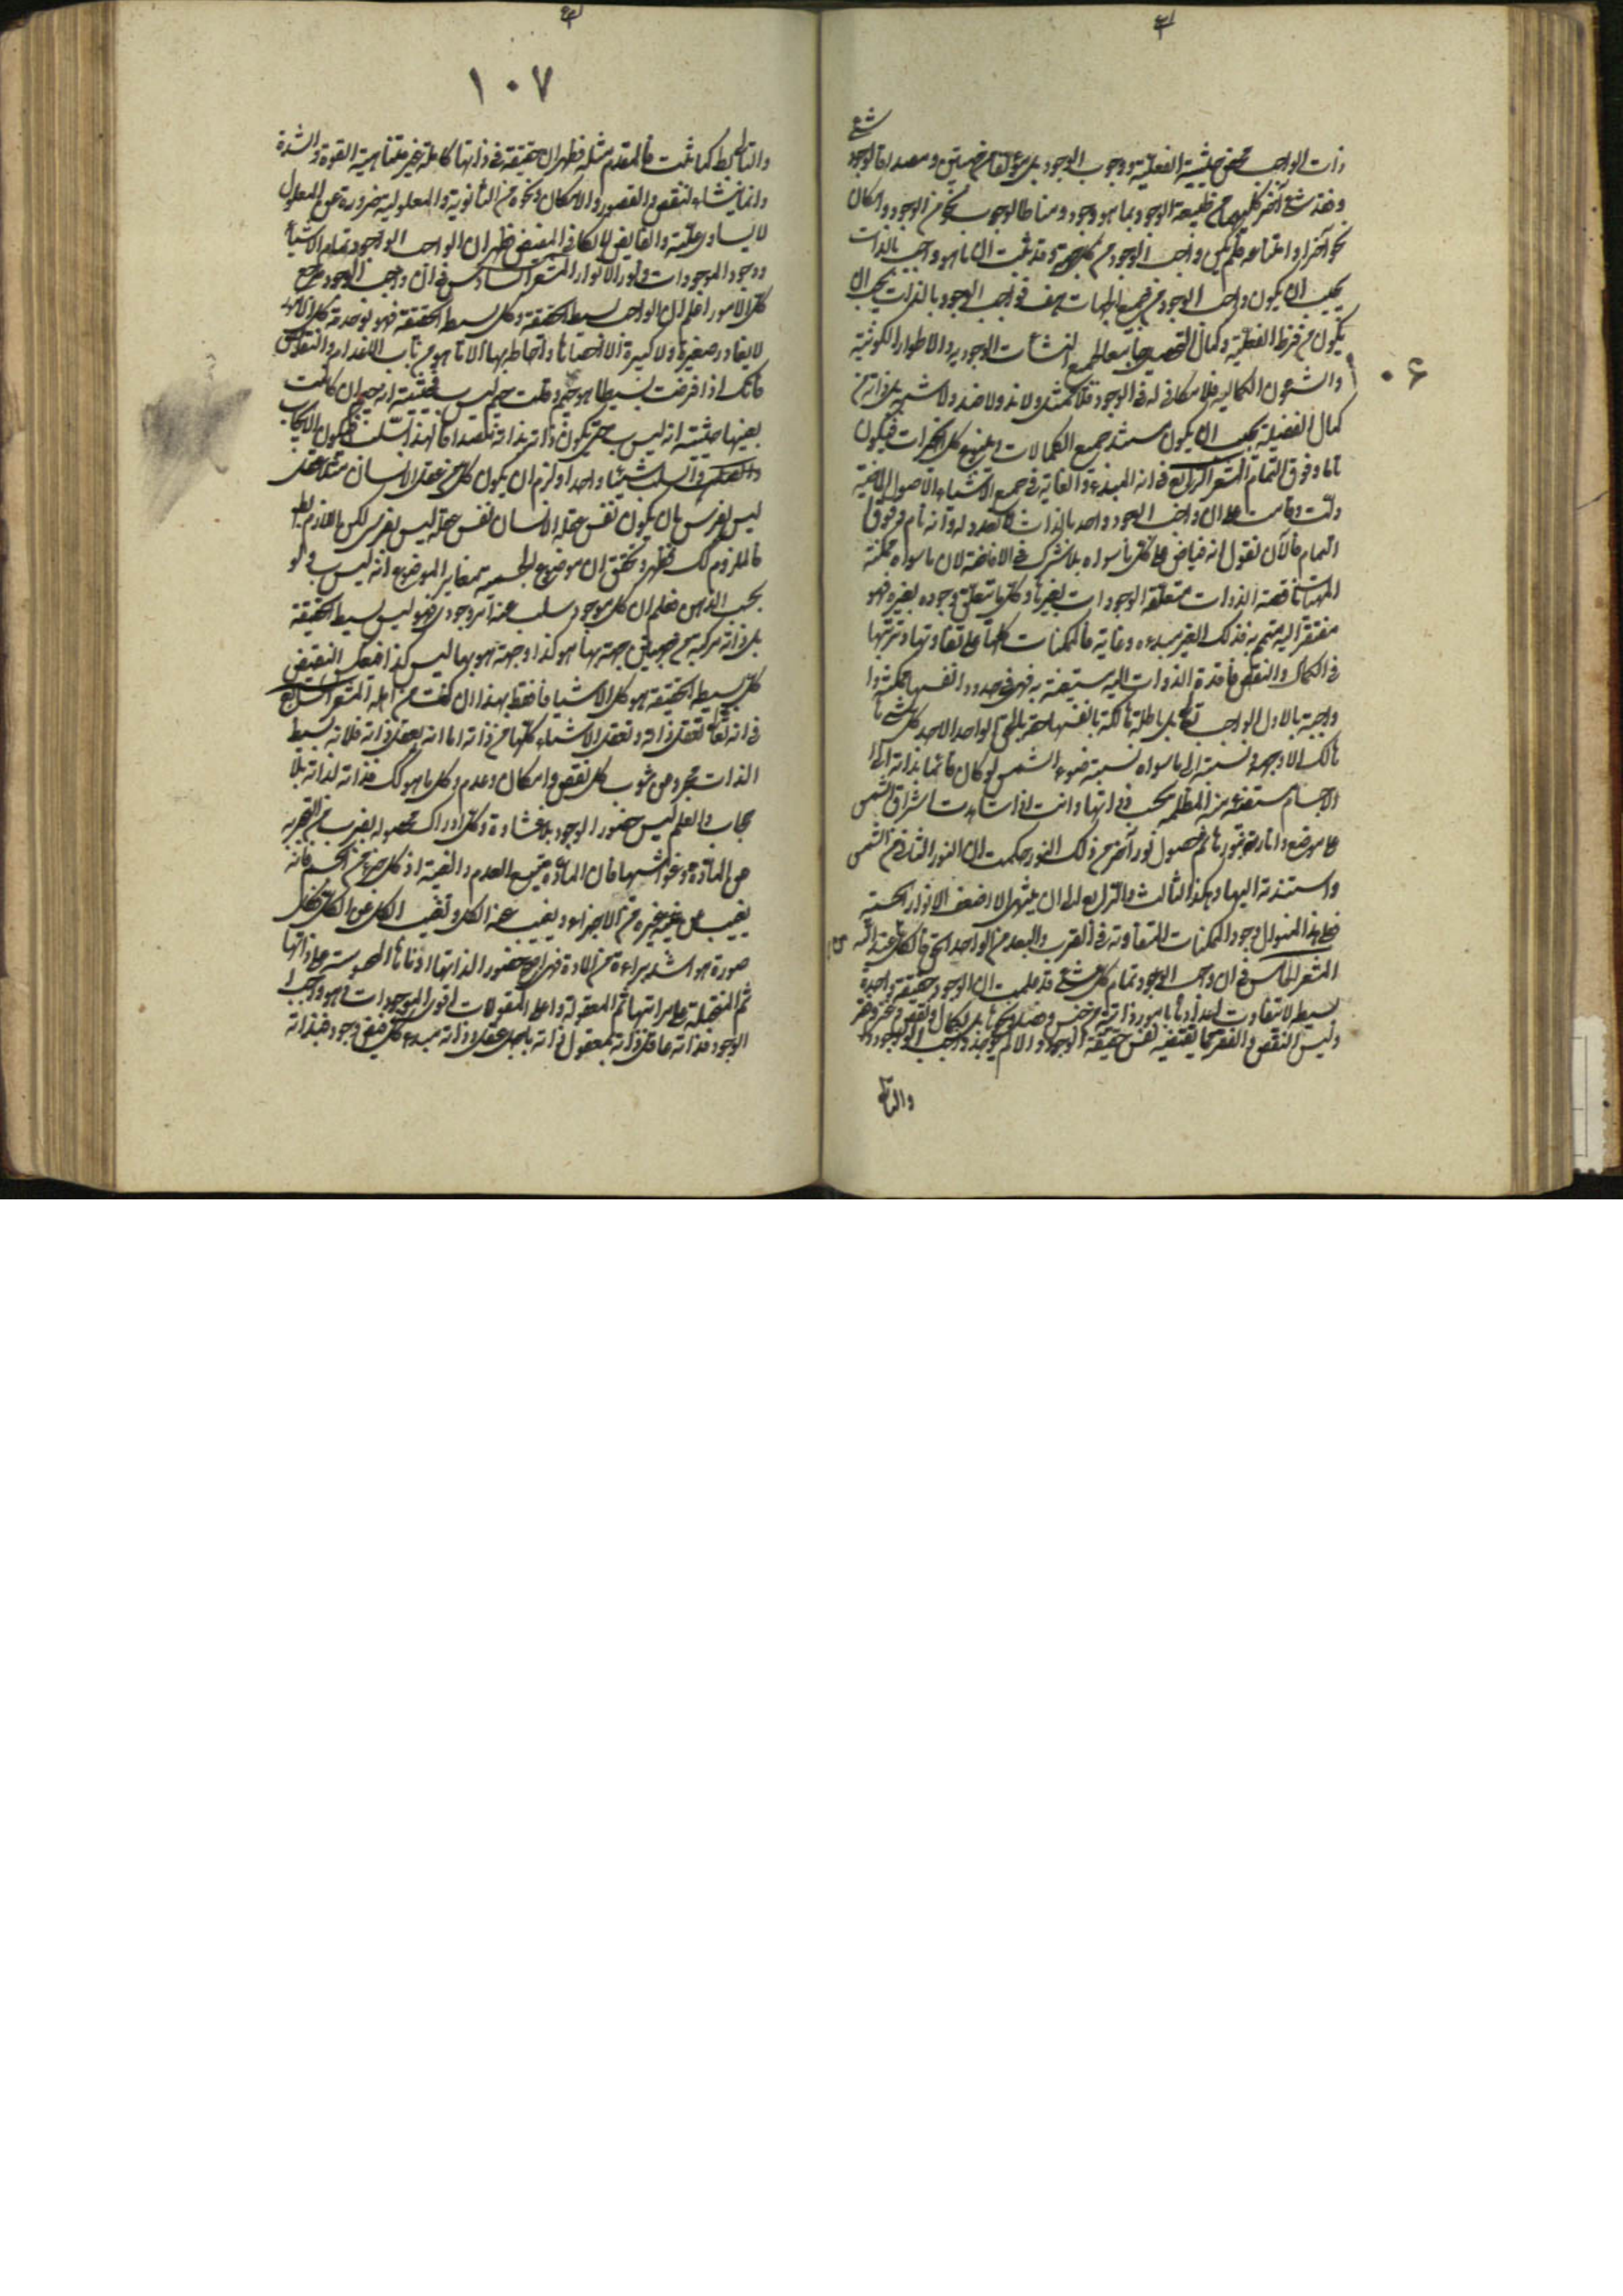 شئ
ذات الواجب محض حيثية الفعلية ووجوب الوجود بل يكون فيه جهتين ومصداقا لوجود
وفقد شئ آخر كليهما من طبيعة الوجود بما هو وجود ومناطا لوجوب نحو من الوجود وامكان
نحو آخر او امتناعه فلم يكن واجب الوجود من كل جهة وقد ثبت ان ما هو واجب بالذات
يجب ان يكون واجب الوجود من جميع الجهات هف فواجب الوجود بالذات يجب ان
يكون من فرط الفعلية وكمال التحصيل جامعا لجميع النشأت الوجودية والاطوار الكونية
والشئون الكمالية فلا مكافئ له في الوجود فلا مثل ولا ند ولا ضد ولا شبه بل ذاته من
كمال الفضيلة يجب ان يكون مستند جميع الكمالات وينبوع كل الخيرات فيكون
تاما وفوق التمام المشعر الرابع في انه المبدء والغاية في جميع الاشياء الاصول الماضية
دلت وقامت على ان واجب الوجود واحد بالذات لا تعدد له وانه تام وفوق
التمام فالآن نقول انه فياض على كل ما سواه بلا شركة في الافاضة لان ما سواه ممكنة
المهيات ناقصة الذوات متعلقة الوجودات بغيرها وكل ما يتعلق وجوده بغيره فهو
مفتقر اليه متمم به فذلك الغير مبدءه وغايته فالممكنات كلها على تفاوتها وترتبها
في الكمال والنقص فاقدة الذوات اليه مستغنية به فهي في حدود انفسها ممكنة
واجبة بالاول الواجب تع بل باطلة هالكة بانفسها حقة بالحق الواحد الاحد كل شئ
هالك الا وجهه ونسبته الى ما سواه نسبة ضوء الشمس لو كان قائما بذاته الى
الاجسام المستضيئة منه المظلمة بحسب ذواتها وانت اذا شاهدت اشراق الشمس
على موضع وانارته بنورها ثم حصول نور آخر من ذلك النور حكمت ان النور الثاني من الشمس
واسندته اليها وهكذا الثالث والرابع الى ان ينتهي الى اضعف الانوار الحسية
فعلى هذا المنوال وجود الممكنات المتفاوتة في القرب والبعد من الواحد الحق فالكل من عند الله
المشعر الخامس في ان واجب الوجود تمام كل شئ قد علمت ان الوجود حقيقة واحدة
بسيطة لا تتفاوت افرادها بامور ذاتية من جنس وفصل ونحوها بل بكمال ونقص وغنى وفقر
وليس النقص والفقر مما يقتضيه نفس حقيقة الوجود والا لم يوجد واجب الوجود
والتالى
١٠٦
١٠٧
والتالى بط كما ثبت فالمقدم مثله فظهر ان حقيقته في ذاتها كاملة غير متناهية القوة والشدة
وانما ينشأ النقص والقصور والامكان ونحوه من الثانوية والمعلولية ضرورة ان المعلول
لا يساوي علته والفائض لا يكافئ المفيض فظهر ان الواجب الوجود تمام الاشياء
ووجود الموجودات ونور الانوار المشعر السادس في ان واجب الوجود مرجع
كل الامور اعلم ان الواجب بسيط الحقيقة وكل بسيط الحقيقة فهو بوحدته كل الامور
لا يغادر صغيرة ولا كبيرة الا احصاها واحاط بها الا ما هو من باب الاعدام والنقائص
فانك اذا فرضت بسيطا هو ج وقلت ج ليس ب فحيثية انه ج ان كانت
بعينها حيثية انه ليس ب حتى يكون ذاته بذاته مصداقا لهذا السلب فيكون الايجاب
والسلب شيئا واحدا ولزم ان يكون كل من عقل الانسان مثلا عقل
ليس بفرس بان يكون نفس عقله الانسان نفس عقله ليس بفرس لكن اللازم بط
فالملزوم كك فظهر وتحقق ان موضوع الجيمية مغاير لموضوع انه ليس ب ولو
بحسب الذهن فعلم ان كل موجود سلب عنه امر وجودي فهو ليس بسيط الحقيقة
بل ذاته مركبة من جهتين جهة بها هو كذا وجهة هو بها ليس كذا فبعكس النقيض
كل بسيط الحقيقة هو كل الاشياء فاحتفظ بهذا ان كنت من اهله المشعر السابع
في انه تعالى يعقل ذاته ويعقل الاشياء كلها من ذاته اما انه يعقل ذاته فلانه بسيط
الذات مجرد عن شوب كل نقص وامكان وعدم وكل ما هو كك فذاته لذاته بلا
حجاب والعلم ليس حضور الوجود بلا غشاوة وكل ادراك فحصوله بضرب من التجريد
عن المادة وغواشيها فان المادة منبع العدم والغيبة اذ كل جزء من الجسم فانه
يغيب عن غيره من الاجزاء ويغيب عنه الكل ويغيب الكل عن الكل فكل
صورة هو اشد براءة من المادة فهي اصح حضورا لذاتها ادناها المحسوسة على ذاتها
ثم المتخيلة على مراتبها ثم المعقولة واعلى المعقولات اقوى الموجودات وهو واجب
الوجود فذاته عاقل ذاته ومعقول ذاته باجل عقل وذاته مبدء كل فيض وجود فبذاته